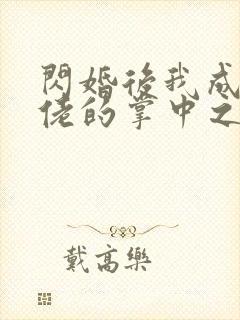 閃婚後我成
佬的掌中之
戴高樂